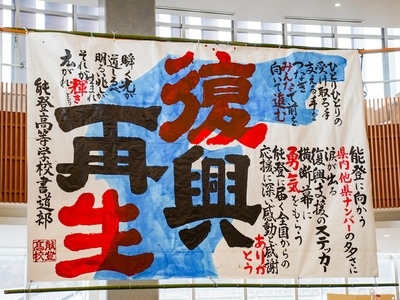 ひとりひとりの
受け取る手を
支える手を
つなぎ
みんなで前を
向いて進む
能登に向かう
県内他県ナンバーの多さに
涙が出る
復興支援のステッカー
横断幕
勇気をもらう
能登に届く全国からの
応援に深く感動と感謝
ありがとう
復興
再生
瞬く光が
道しるべ
明るい兆しが
それが輝き
広がれ
能登高等学校書道部
能登高校